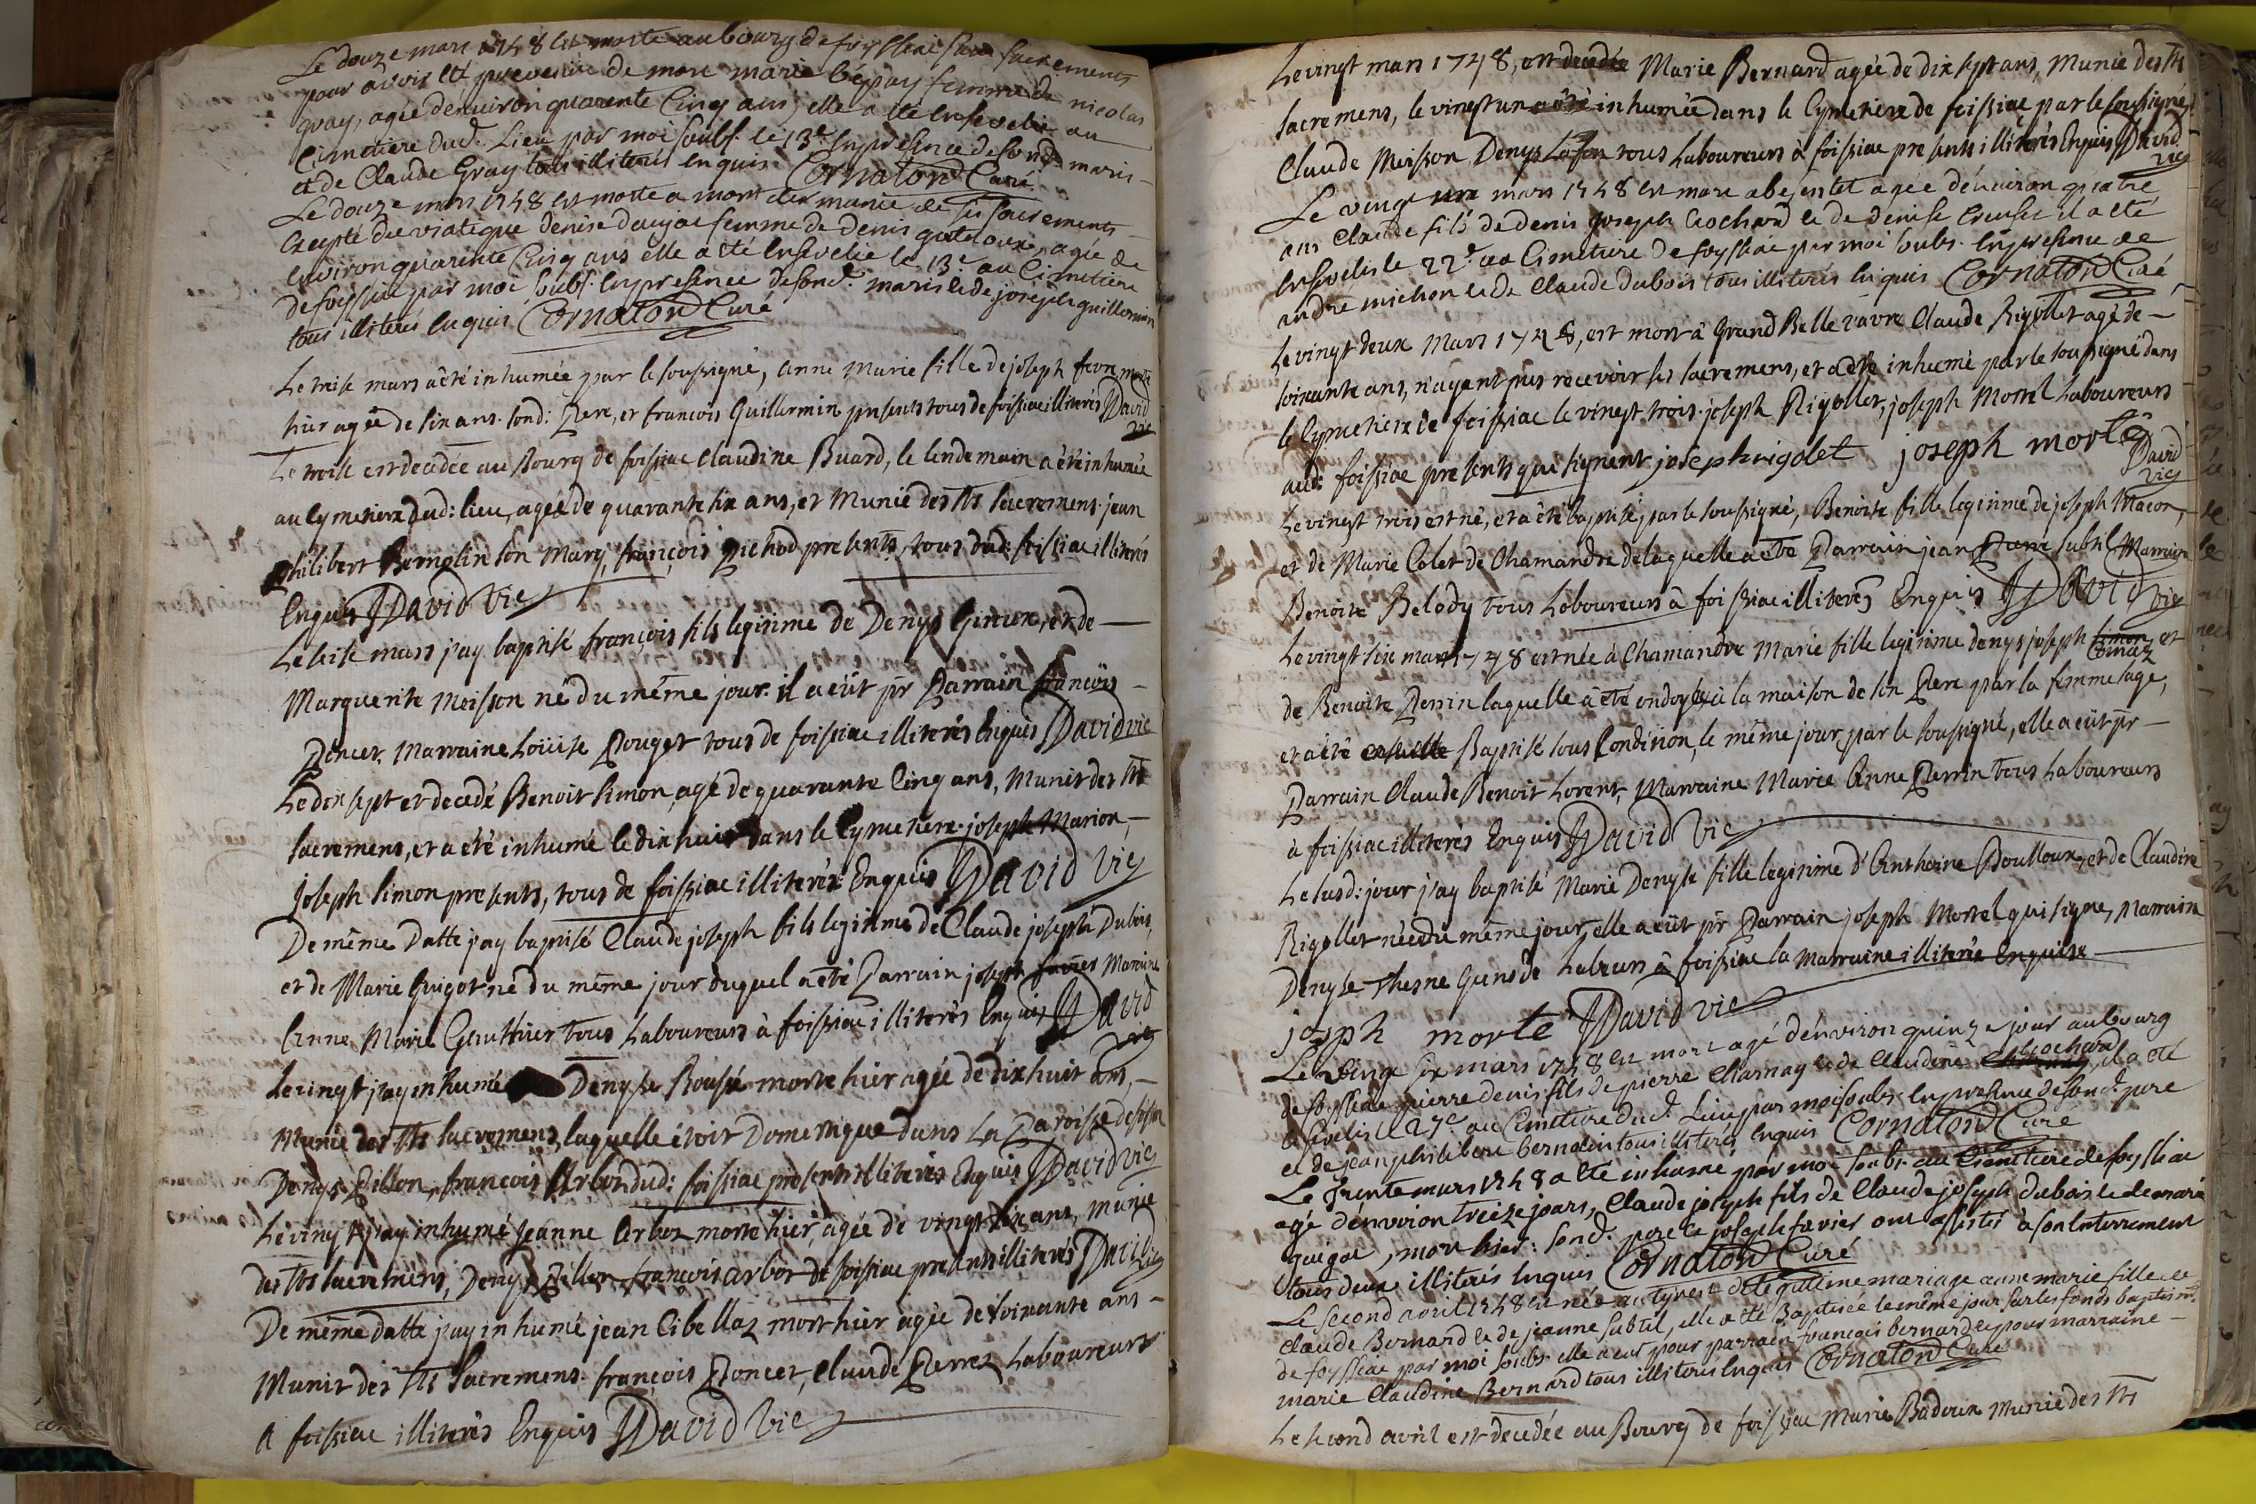 Le douze mars 1748 est morte au bourg de foyssiac sans sacrements
pour avoir été prevenue de mort marie bépay femme de nicolas
gray, agée denviron quarante Cinq ans, elle a été Ensevelie au
Cimetiere dud. Lieu par moi soubs. le 13e. En presence de sond. maris
et de Claude Gray tous illiterés Enquis Cornaton Curé
Le douze mars 1748 est morte a mont munie de ses sacrements
Excepté du viatique denise daujat femme de denis gateoux, agée de
Environ quarente Cinq ans elle a été Ensevelie le 13e. au Cimetiere
de foyssiac par moi soubs. En presence de sond. maris et de joseph guillermin
tous illiterés Enquis Cornaton Curé
Le treise mars a été inhumée par le soussigné, Anne Marie fille de joseph fevre morte
hier agée de six ans. sond: Pere, et françois Guillermin presents tous de foissiac illiterés David
vic
Le treise est decedée au Bourg de foissiac Claudine Buard, le lendemain a été inhumée
au Cymetiere dud: lieu, agée de quarante six ans, et Munie des Sts sacremens. jean
Philibert Bernolin son Mary, françois Pichod presents, tous dud: foissiac illiterés
Enquis David Vic
Le seise mars j'ay baptisé françois fils legitime de Denys Giroux, et de
Marguerite Moisson né du même jour. il a eüt pr Parrain françois
Poncet, Marraine Loüise Pouget tous de foissiac illiterés Enquis David vic
Le dix sept est decedé Benoit Simon, agé de quarante Cinq ans, Munit des Sts
sacremens, et a été inhumé le dix huit dans le Cymetiere. joseph Marion,
Joseph Simon presents, tous de foissiac illiterés Enquis David Vic
De même Datte j'ay baptisé Claude joseph fils legitime de Claude joseph Dubois,
et de Marie Guigot né du même jour duquel a été Parrain joseph favier Marraine
Anne Marie Gauthier tous Laboureurs à foissiac illiterés Enquis David
vic
Le vingt j'ay inhumé Denyse Roussé morte hier agée de dix huit ans,
Munie des Sts sacremens, laquelle étoit Domestique dans La Paroisse de foissiac
Denys Pillon, françois Arbor dud: foissiac presents illiterés Enquis David vic
Le vingt j'ay inhumé Jeanne Arbor morte hier, agée de vingt six ans, munie
des Sts sacremens, Denys Pillon françois arbor de foissiac presents illiterés David vic
De même datte j'ay inhumé jean Cibellaz mort hier agée de soixante ans
Munit des Sts Sacremens. françois Poncet, Claude Perret Laboureurs
A foissiac illiterés Enquis David Vic
Le vingt mars 1748, est decedée Marie Bernard agée de dix sept ans, Munie des Sts
sacremens, le vingt un a été inhumée dans le Cymetiere de foissiac par le soussigné
Claude Moisson Denys Lafon tous Laboureurs à foissiac presents illiterés Enquis David
vic
Le vingt un mars 1748 est mort agée d'environ quatre
ans Claude fils de denis joseph Cochard et de denise Creuset il a été
Ensevelis le 22e. au Cimetiere de foyssiac par moi soubs. En presence de
andré michon et de Claude dubois tous illiterés Enquis Cornaton Curé
Le vingt deux Mars 1748, est mort à Grand Bellevavre Claude Rigollet agé de
soixante ans, n'ayant pus recevoir ses sacremens, et a été inhumé par le soussigné dans
le Cymetiere de foissiac le vingt trois. joseph Rigollet, joseph Mortel Laboureurs
aud: foissiac presents qui signent joseph rigolet joseph morte
David
vic
Le vingt trois est né, et a été baptisé, par le soussigné, Benoite fille legitime de joseph Macon,
et de Marie Colet de Chamandre de laquelle a été Parrain jean Pierre Subtil Marraine
Benoite Belody tous Laboureurs à foissiac illiterés Enquis David vic
Le vingt six mars 1748 est née à Chamandre Marie fille legitime denys joseph Simon Comaz et
de Benoite Perrin laquelle a été ondoyée à la maison de son Pere par la femme sage,
et a été ensuitte Baptisé sous Condition, le même jour par le soussigné, elle a eüt pr
Parrain Claude Benoit Lorent, Marraine Marie Anne Perrin tous Laboureurs
à foissiac illiterés Enquis David Vic
Le susd: jour j'ay baptisé Marie Denyse fille legitime d'Anthoine Doulloux, et de Claudine
Rigollet née du même jour, elle a eüt pr Parrain joseph Mortel qui signe, Marraine
Denyse Thesne Gens de Labeurs à foissiac la marraine illiterée Enquise
joseph morte David vic
Le vingt six mars 1748 est mort agé d'environ quinze jour au bourg
de foyssiac pierre denis fils de pierre Charnay et de Claudine Cochard, il a été
Ensevelis le 27e. au Cimetiere dud. Lieu par moi soubs. En presence de sond. pere
et de jean philibert bernolin tous illiterés Enquis Cornaton Curé
Le trente mars 1748 a été inhumé par moi soubs. au Cimetiere de foyssiac
agé d'environ treize jours, Claude joseph fils de Claude joseph dubois et de marie
guigot, mort hier. sond. pere et joseph favier ont assistés à son Enterrement
tous deux illiterés Enquis Cornaton Curé
Le second avril 1748 est née au tyret et de légitime mariage anne marie fille de
Claude Bernard et de jeanne subtil, elle a été Baptisée le même jour sur les fonds baptism.
de foyssiac par moi soubs. elle a eut pour parrain françois bernard et pour marraine
marie Claudine Bernard tous illiterés Enquis Cornaton Curé
Le second avril est decedée au Bourg de foissiac Marie Badoux Munie des Sts